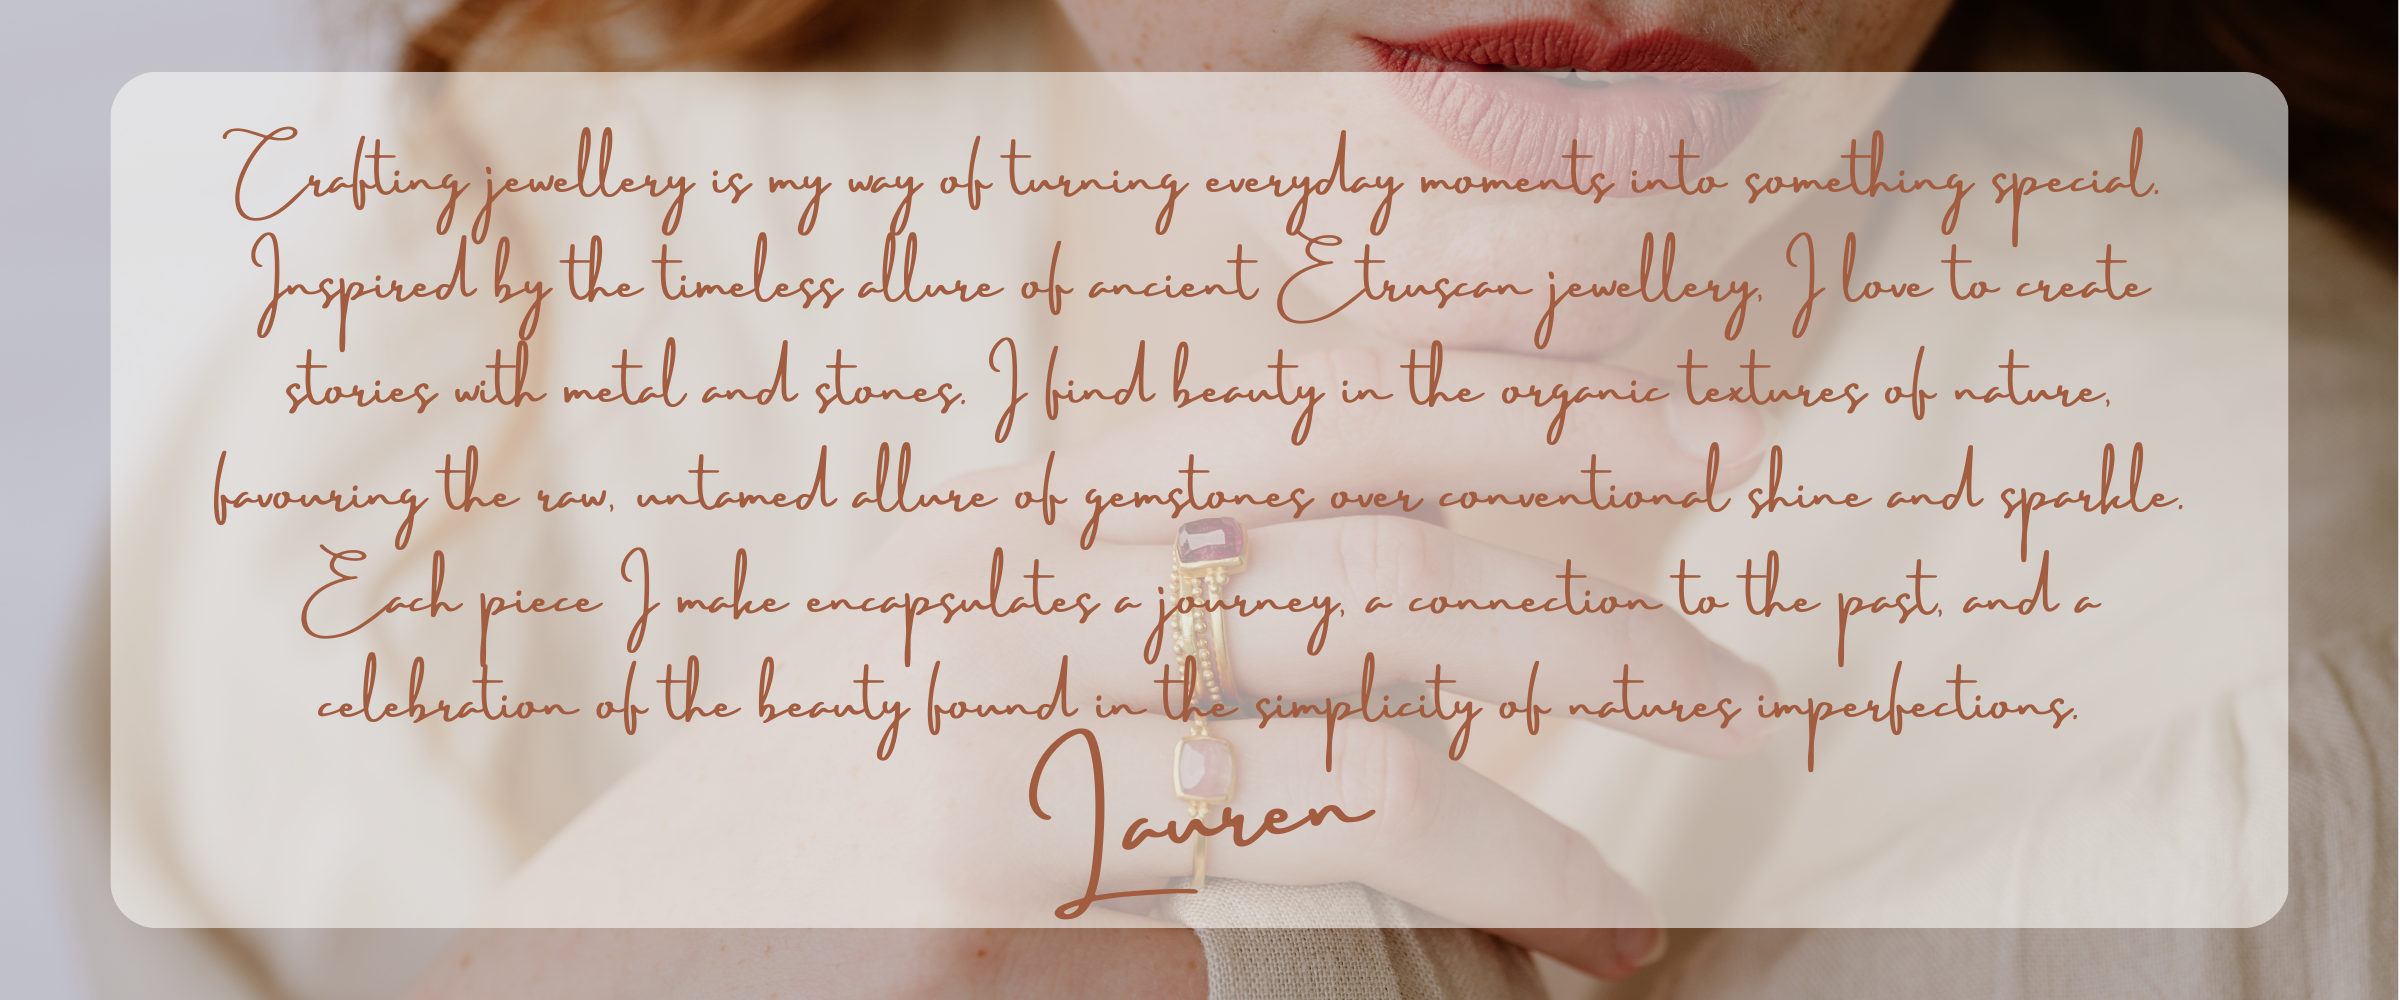 Crafting jewellery is my way of turning everyday moments into something special.
Inspired by the timeless allure of ancient Etruscan jewellery, I love to create
stories with metal and stones. I find beauty in the organic textures of nature,
favouring the raw, untamed allure of gemstones over conventional shine and sparkle.
Each piece I make encapsulates a journey, a connection to the past, and a
celebration of the beauty found in the simplicity of natures imperfections.
Lauren